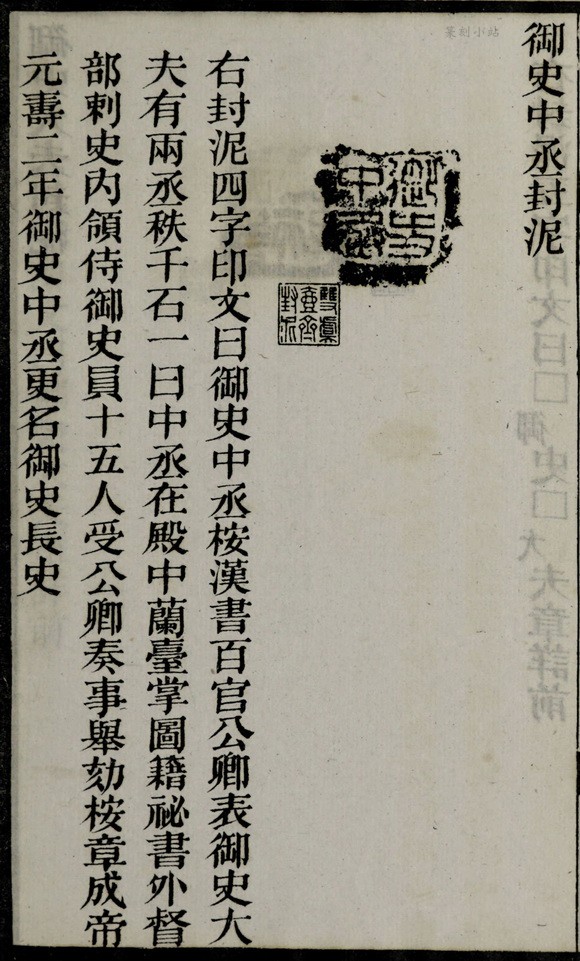 篆刻小站
御史中丞封泥
御史
中丞
雙虞
壺齊
封泥
右封泥四字印文曰御史中丞桉漢書百官公卿表御史大
夫有兩丞秩千石一曰中丞在殿中蘭臺掌圖籍祕書外督
部刺史內領侍御史員十五人受公卿奏事舉劾桉章成帝
元壽二年御史中丞更名御史長史